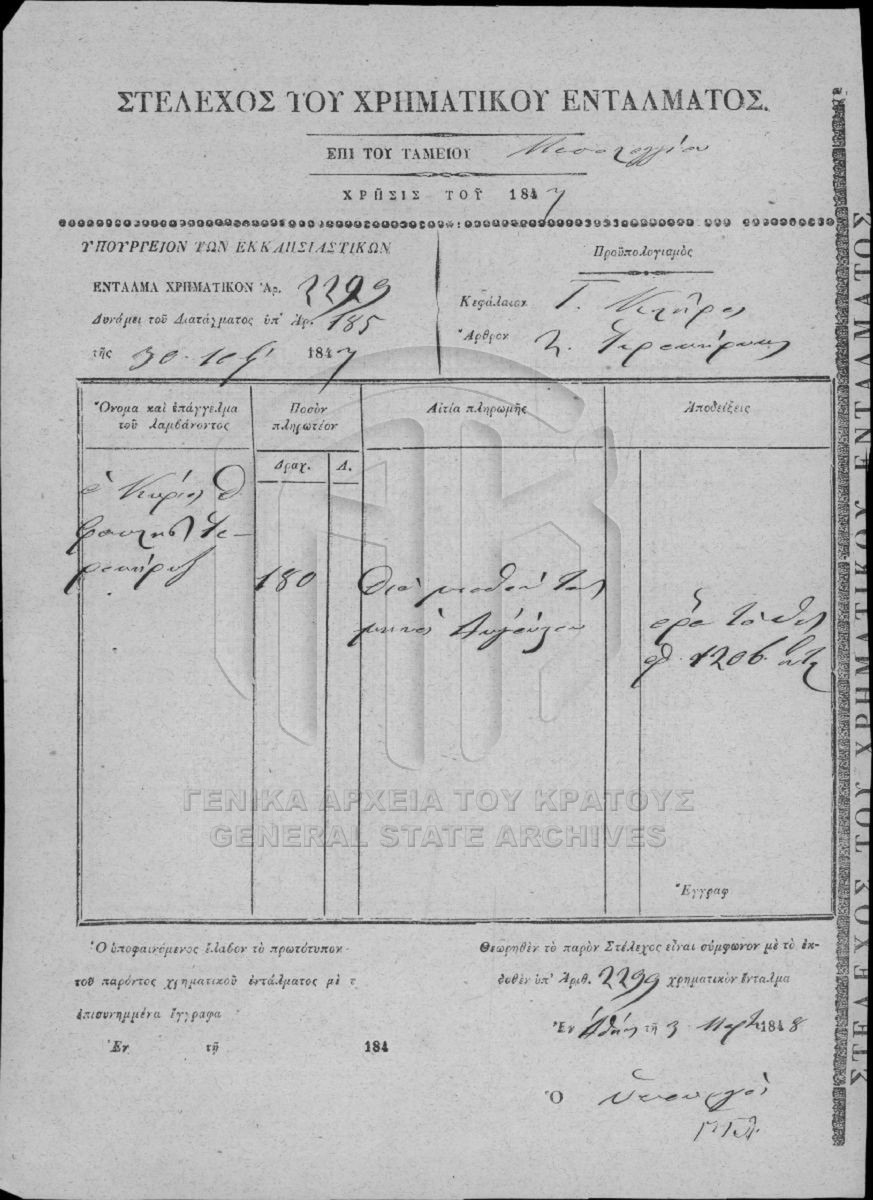 ΣΤΕΛΕΧΟΣ ΤΟΥ ΧΡΗΜΑΤΙΚΟΥ ΕΝΤΑΛΜΑΤΟΣ.
ΕΠΙ ΤΟΥ ΤΑΜΕΙΟΥ Μεσολογγίου
ΧΡΗΣΙΣ ΤΟΥ 1847
ΥΠΟΥΡΓΕΙΟΝ ΤΩΝ ΕΚΚΛΗΣΙΑΣΤΙΚΩΝ
ΕΝΤΑΛΜΑ ΧΡΗΜΑΤΙΚΟΝ Ἀρ. 2299
Δυνάμει τοῦ Διατάγματος ὑπ' Ἀρ. 185
τῆς 30 1847
Προϋπολογισμὸς
Κεφάλαιον Γ. Κλῆρος
Ἄρθρον
Ὄνομα καὶ ἐπάγγελμα
τοῦ λαμβάνοντος
Ποσὸν
πληρωτέον
Δραχ. Λ.
Αἰτία πληρωμῆς
Ἀποδείξεις
ὁ Κύριος
180
διὰ μισθόν του
μηνὸς Αὐγούστου
ὅρα τὸ
1206
ΓΕΝΙΚΑ ΑΡΧΕΙΑ ΤΟΥ ΚΡΑΤΟΥΣ
GENERAL STATE ARCHIVES
Ἔγγραφ
Ὁ ὑποφαινόμενος ἔλαβον τὸ πρωτότυπον
τοῦ παρόντος χρηματικοῦ ἐντάλματος μὲ τ
ἐπισυνημμένα ἔγγραφα
Ἐν τῇ 184
Θεωρηθὲν τὸ παρὸν Στέλεχος εἶναι σύμφωνον μὲ τὸ ἐκ-
δοθὲν ὑπ' Ἀριθ. 2299 χρηματικὸν ἔνταλμα
Ἐν Ἀθήν τῇ 3 Μαρτ 1848
Ὁ ὑπουργὸς
ΣΤΕΛΕΧΟΣ ΤΟΥ ΧΡΗΜΑΤΙΚΟΥ ΕΝΤΑΛΜΑΤΟΣ